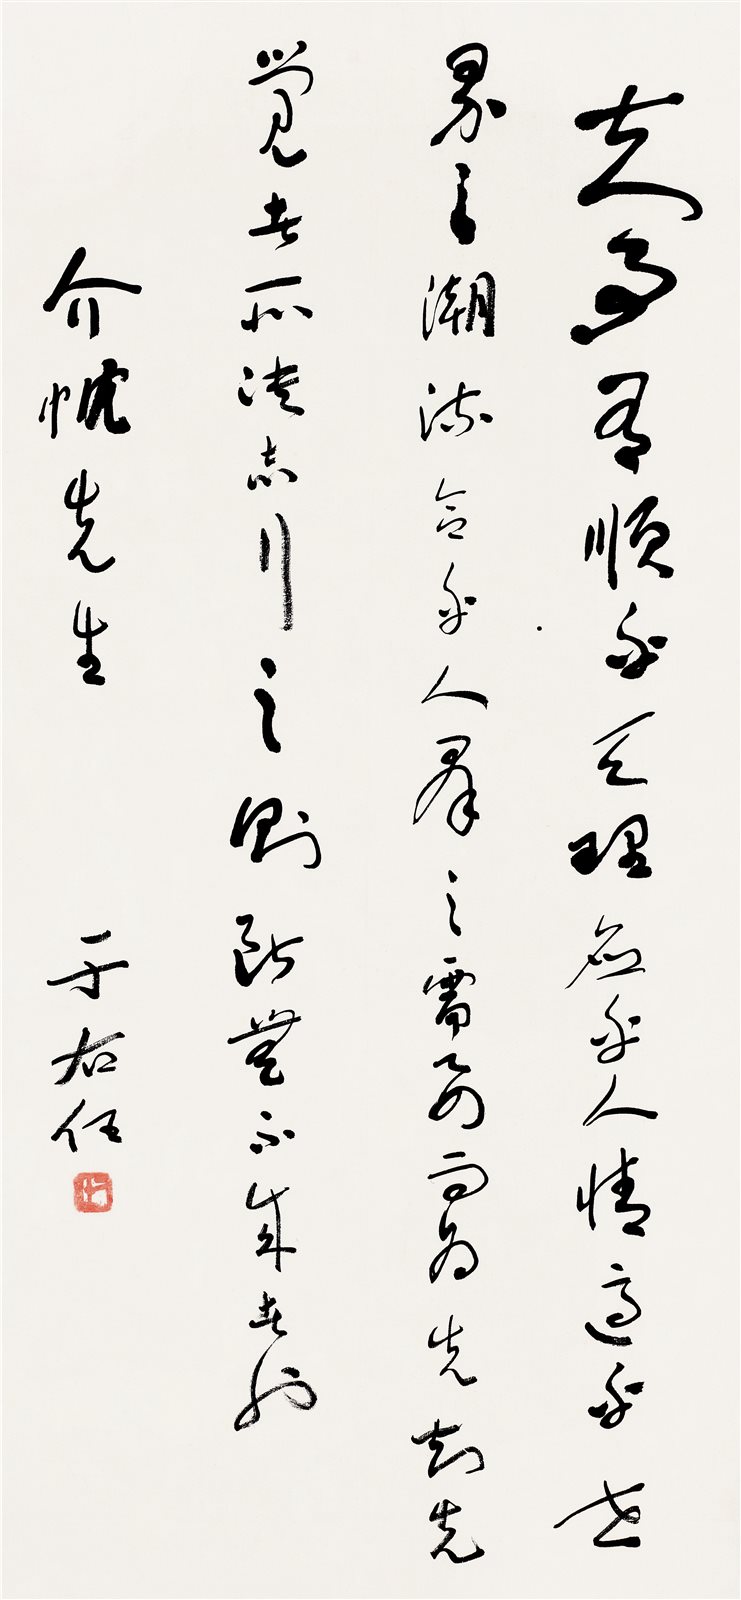 夫事有順乎天理應乎人情適乎世
界之潮流合乎人群之需要而為先知先
覺者所決志行之則斷無不成者也
介忱先生
于右任